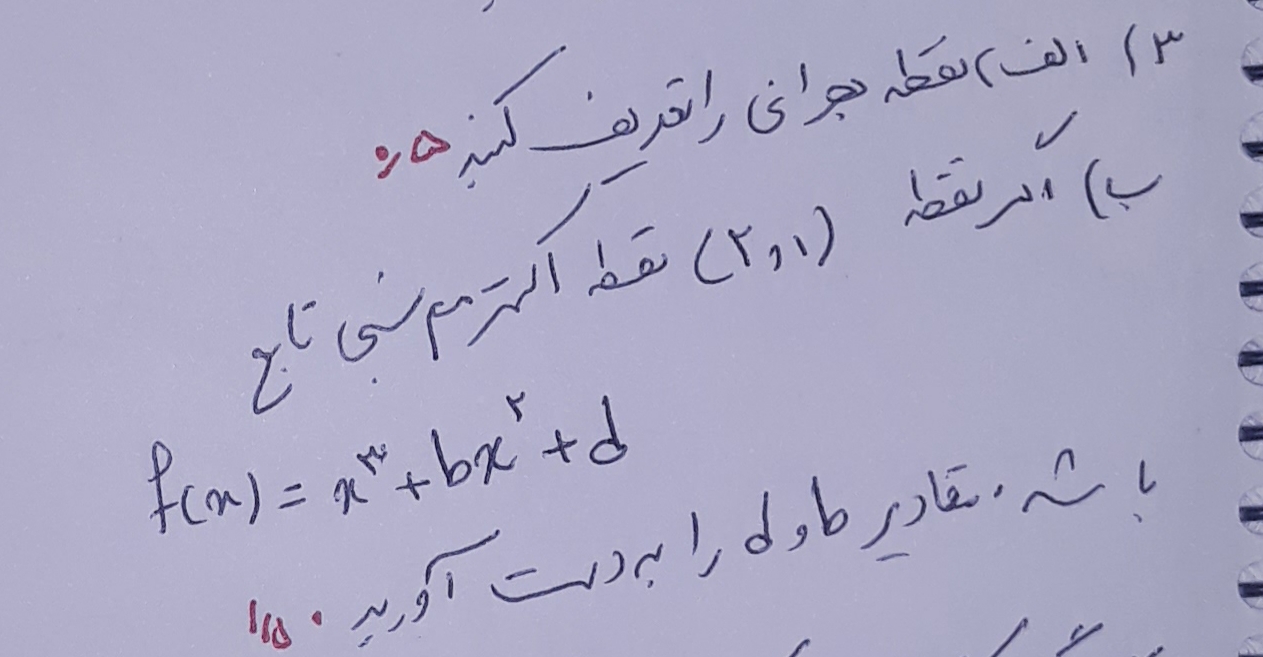 ۳) الف) نقطه بحرانی را تعریف کنید ۰٫۵
ب) اگر نقطه (۲,۱) نقطه اکسترمم نسبی تابع
f(x) = x^۳ + bx^۲ + d
باشد. مقادیر b و d را به دست آورید. ۱٫۵